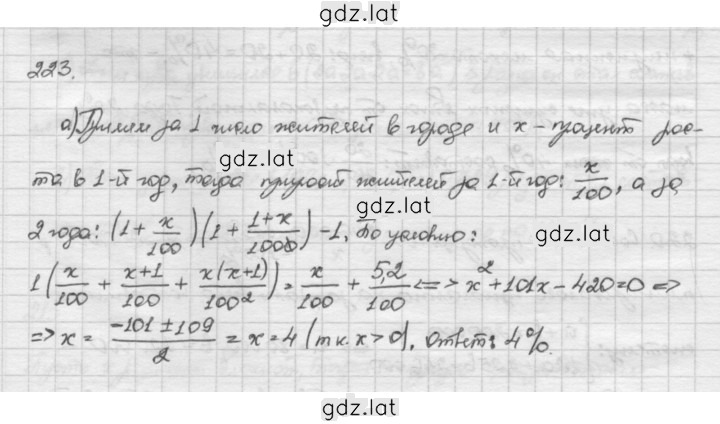 gdz.lat
223.
а) Примем за 1 число жителей в городе и x - процент рос-
та в 1-й год, тогда прирост жителей за 1-й год: x/100, а за
gdz.lat
2 года: (1 + x/100)(1 + 1+x/1000) - 1, По условию:
gdz.lat
1(x/100 + x+1/100 + x(x+1)/100²) = x/100 + 5,2/100 <=> x² + 101x - 420 = 0 =>
=> x = -101 ± 109/2 = x = 4 (т.к. x > 0). Ответ: 4%.
gdz.lat